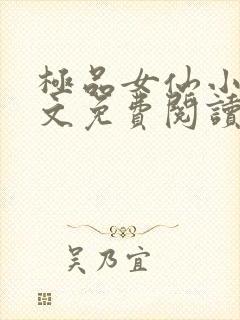 極品女仙小
文免費閱讀
吳乃宜